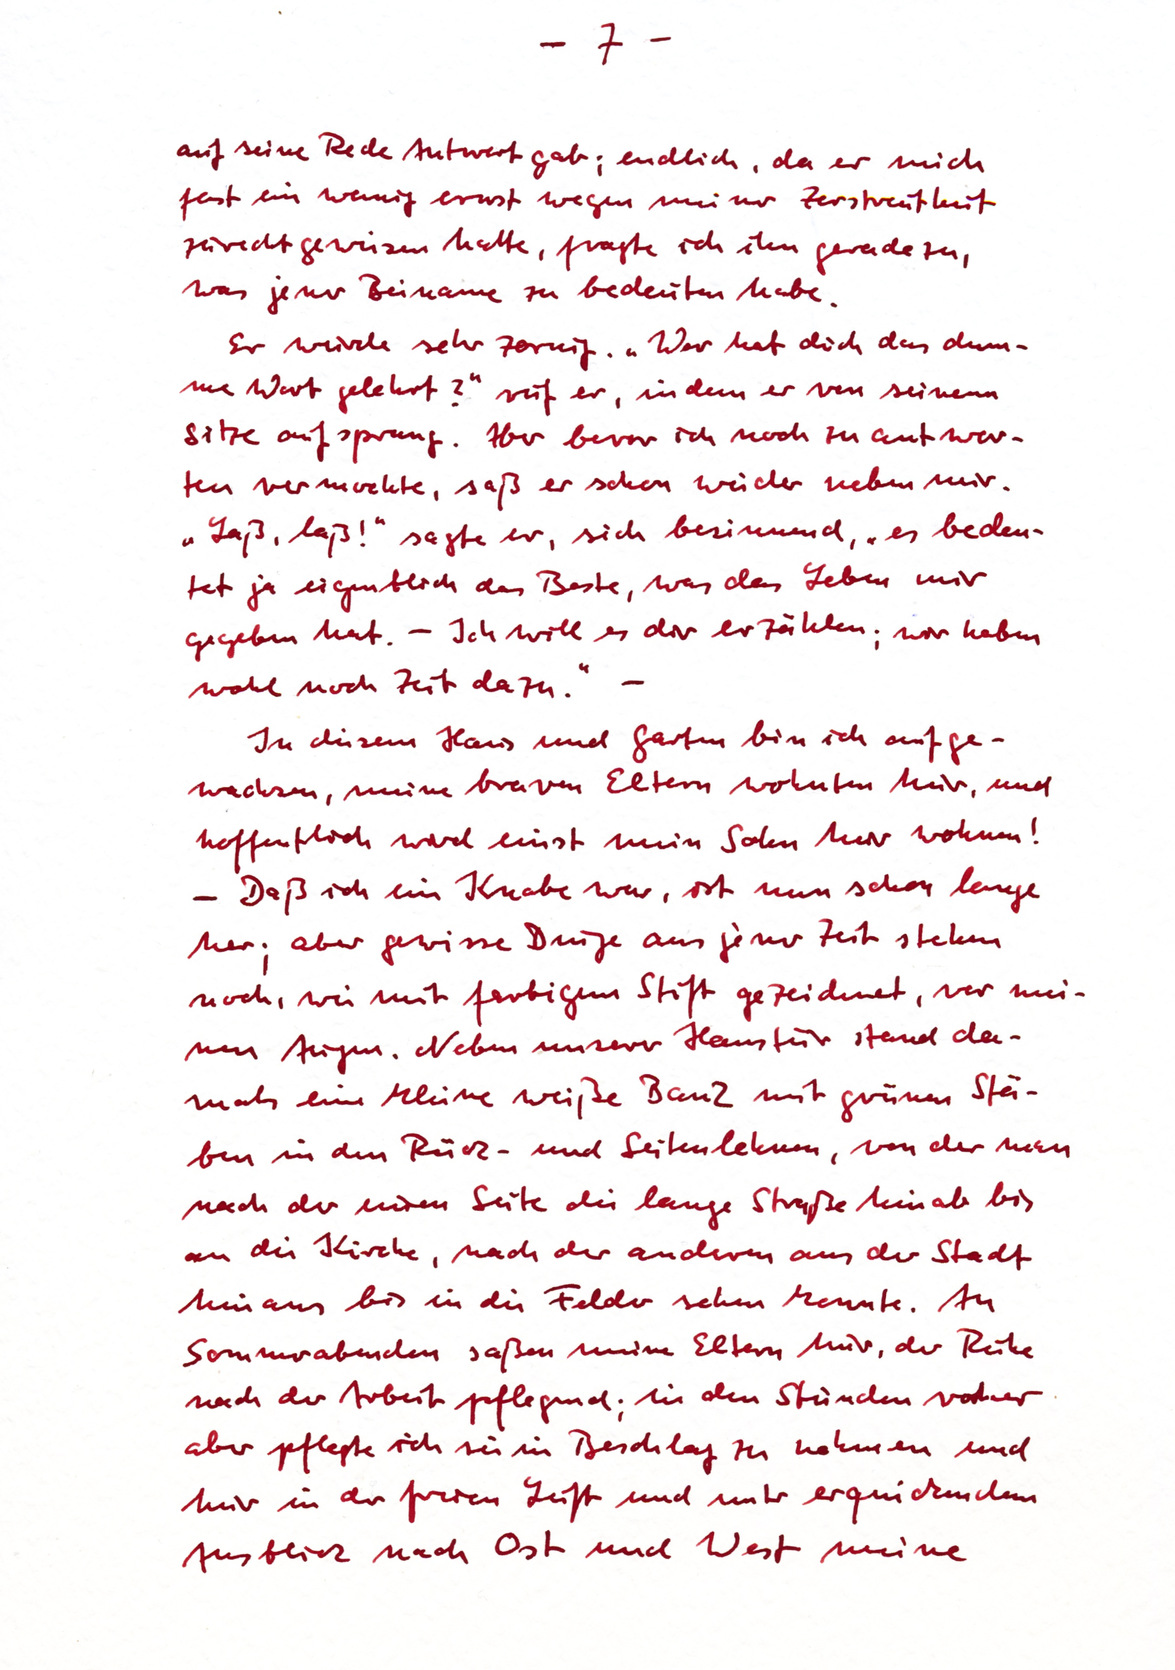 – 7 –
auf seine Rede Antwort gab; endlich, da er mich
fast ein wenig ernst wegen meiner Zerstreutheit
zurechtgewiesen hatte, fragte ich ihn geradezu,
was jener Beiname zu bedeuten habe.
Er wurde sehr zornig. „Wer hat dich das dum-
me Wort gelehrt?“ rief er, indem er von seinem
Sitze aufsprang. Aber bevor ich noch zu antwor-
ten vermochte, saß er schon wieder neben mir.
„Laß, laß!“ sagte er, sich besinnend, „es bedeu-
tet ja eigentlich das Beste, was das Leben mir
gegeben hat. – Ich will es dir erzählen; wir haben
wohl noch Zeit dazu.“ –
In diesem Haus und Garten bin ich aufge-
wachsen, meine braven Eltern wohnten hier, und
hoffentlich wird einst mein Sohn hier wohnen!
– Daß ich ein Knabe war, ist nun schon lange
her; aber gewisse Dinge aus jener Zeit stehen
noch, wie mit farbigem Stift gezeichnet, vor mei-
nen Augen. Neben unserer Haustür stand da-
mals eine kleine weiße Bank mit grünen Stä-
ben in den Rück- und Seitenlehnen, von der man
nach der einen Seite die lange Straße hinab bis
an die Kirche, nach der anderen aus der Stadt
hinaus bis in die Felder sehen konnte. An
Sommerabenden saßen meine Eltern hier, der Ruhe
nach der Arbeit pflegend; in den Stunden vorher
aber pflegte ich sie in Beschlag zu nehmen und
hier in der freien Luft und unter erquickendem
Ausblick nach Ost und West meine